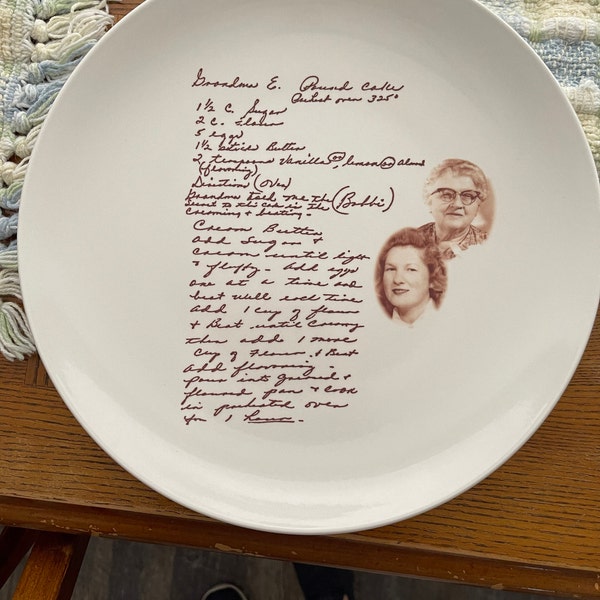 Grandma E. Pound Cake
Preheat oven 325°
1 1/2 C. Sugar
2 C. Flour
5 eggs
1 1/2 stick Butter
2 teaspoons Vanilla or lemon or Almond
(flavoring)
Direction (over)
Grandma told me the (Bobbi)
secret to this cake is the
creaming & beating.
Cream Butter
add Sugar &
cream until light
& fluffy. Add eggs
one at a time and
beat well each time
add 1 cup of flour
& Beat until Creamy
then add 1 more
Cup of Flour & Beat
Add flavoring -
pour into greased &
floured pan & Cook
in preheated oven
for 1 hour.